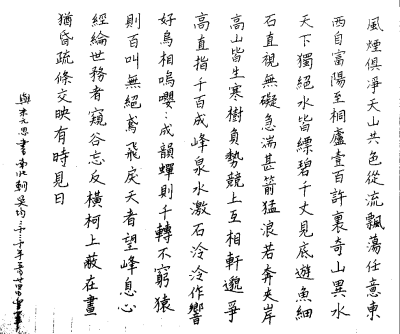 風煙俱淨天山共色從流飄蕩任意東
西自富陽至桐廬壹百許裏奇山異水
天下獨絕水皆縹碧千丈見底遊魚細
石直視無礙急湍甚箭猛浪若奔夾岸
高山皆生寒樹負勢競上互相軒邈爭
高直指千百成峰泉水激石泠泠作響
好鳥相鳴嚶嚶成韻蟬則千轉不窮猿
則百叫無絕鳶飛戾天者望峰息心
經綸世務者窺谷忘反橫柯上蔽在晝
猶昏疏條交映有時見日
與朱元思書 南北朝 吳均